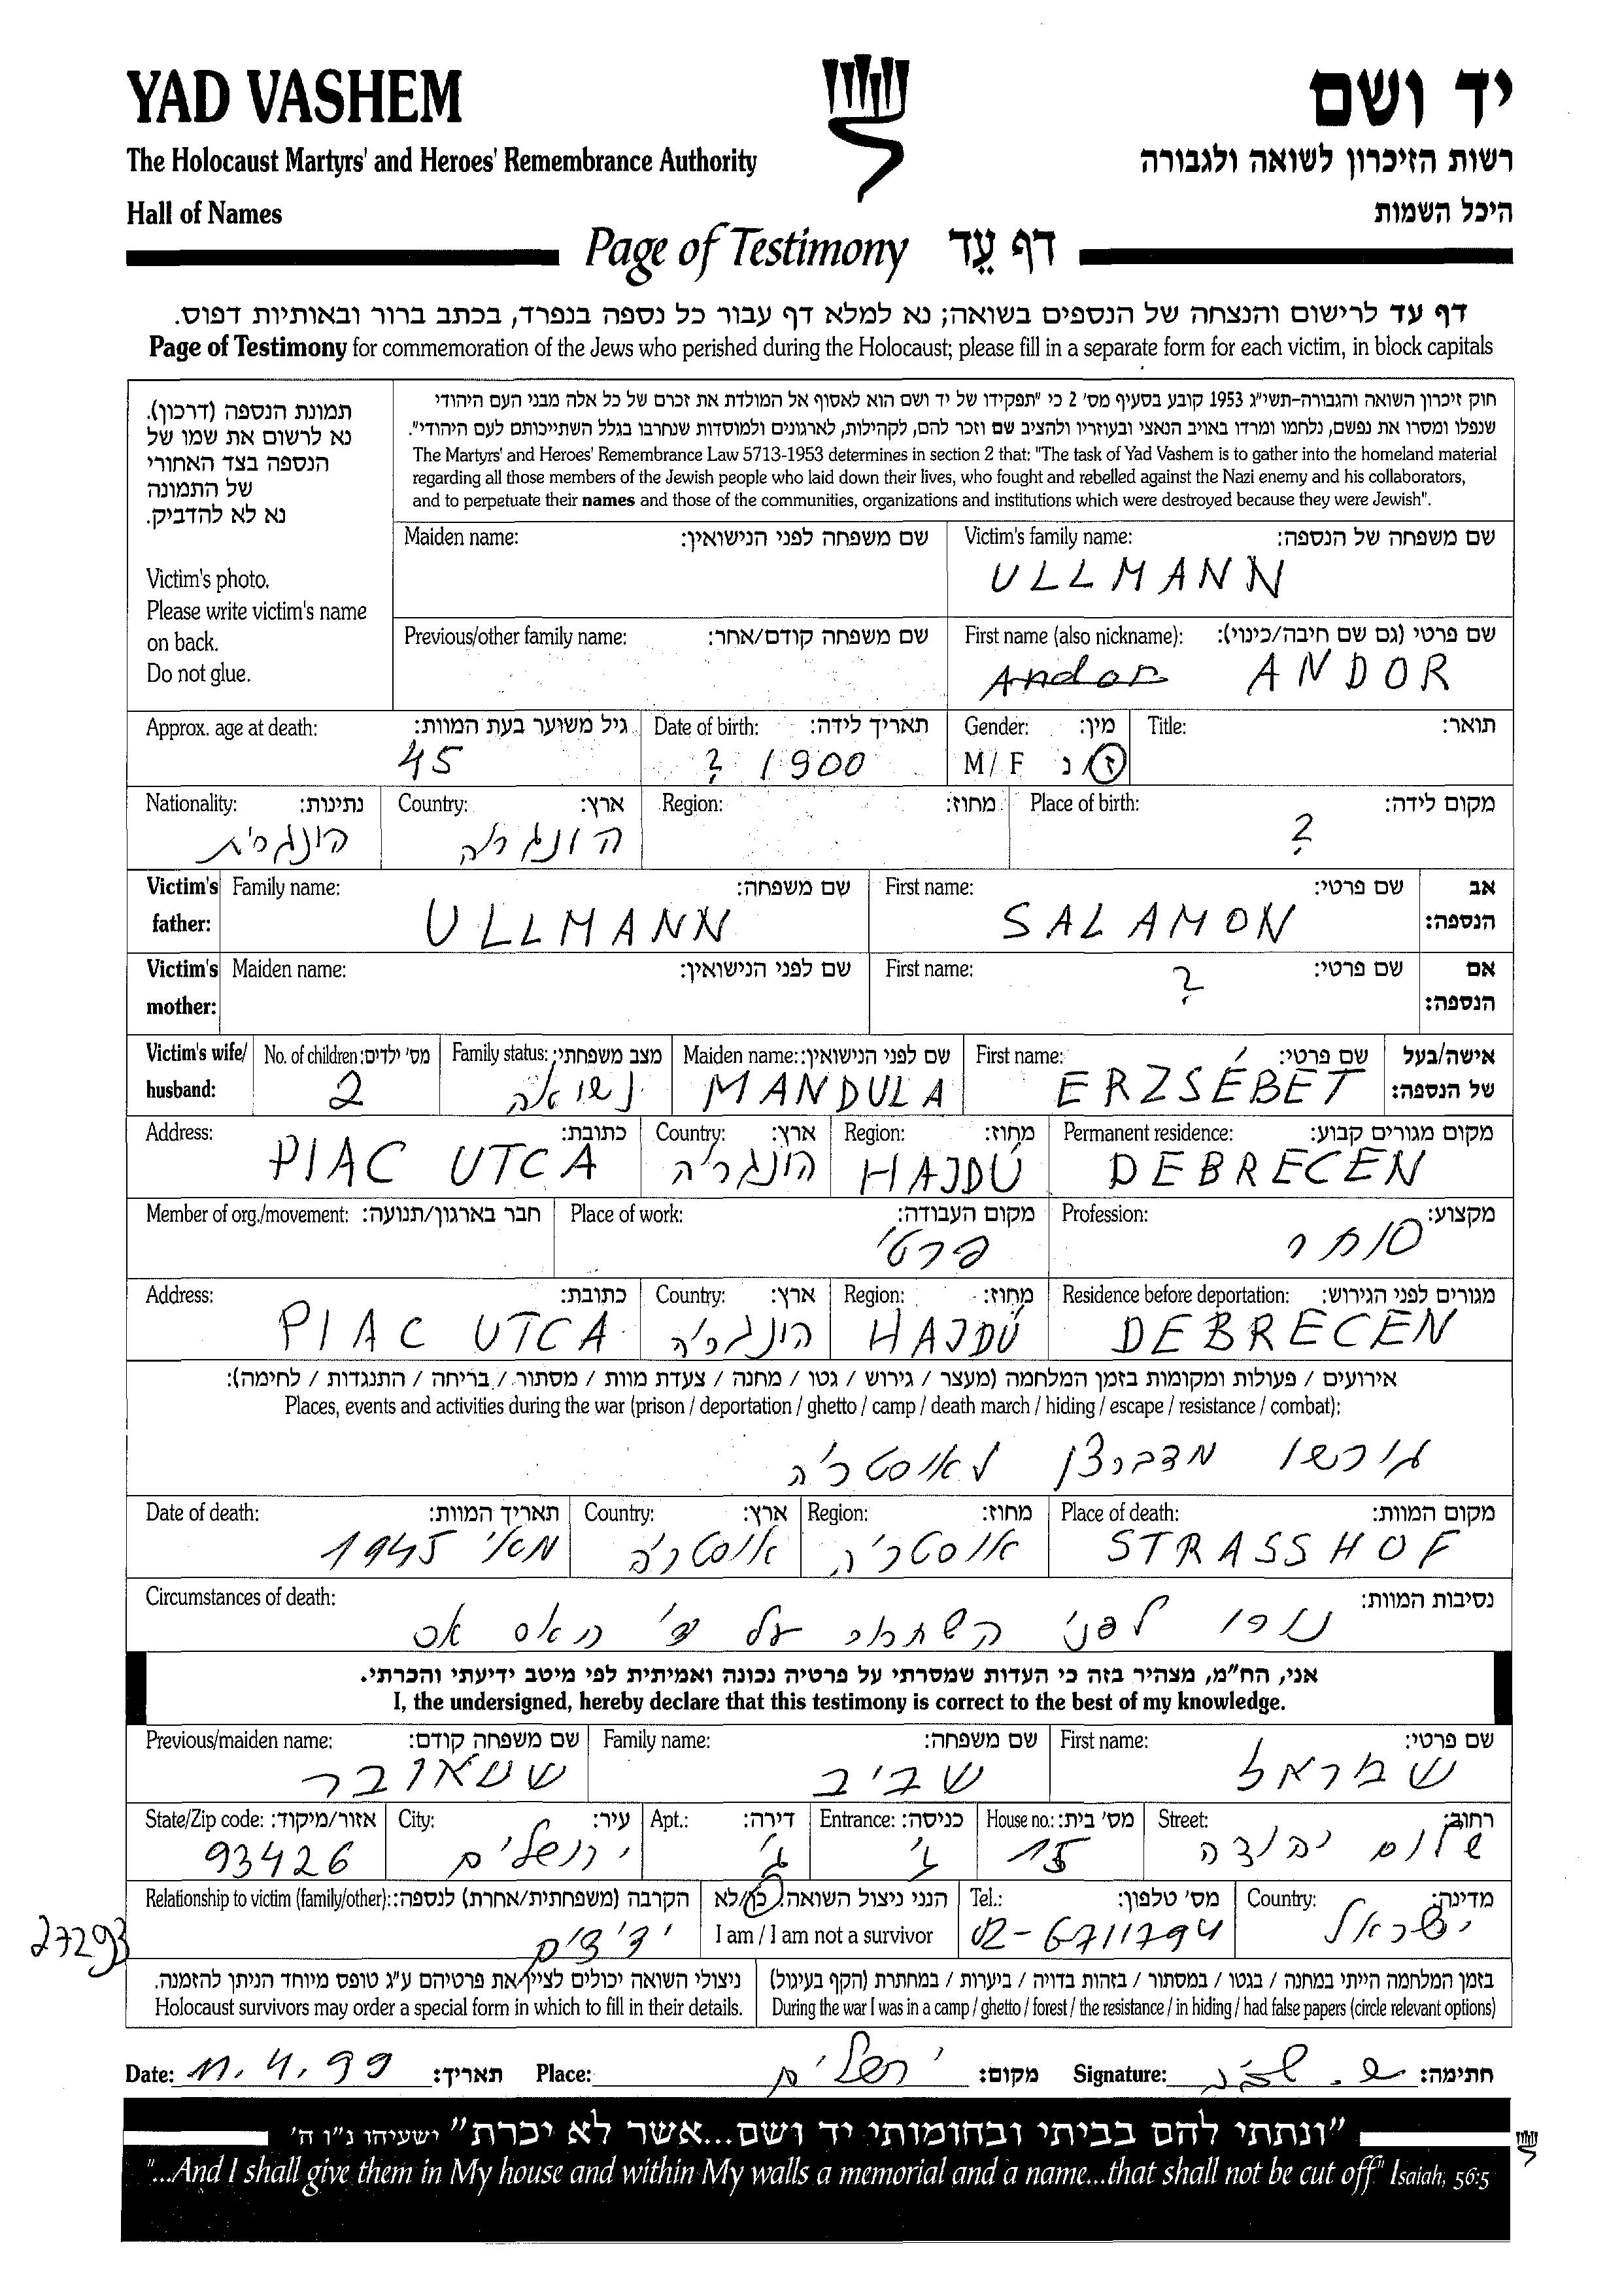 YAD VASHEM
יד ושם
The Holocaust Martyrs' and Heroes' Remembrance Authority
רשות הזיכרון לשואה ולגבורה
Hall of Names
היכל השמות
Page of Testimony דף עֵד
דף עד לרישום והנצחה של הנספים בשואה; נא למלא דף עבור כל נספה בנפרד, בכתב ברור ובאותיות דפוס.
Page of Testimony for commemoration of the Jews who perished during the Holocaust; please fill in a separate form for each victim, in block capitals
תמונת הנספה (דרכון).
נא לרשום את שמו של
הנספה בצד האחורי
של התמונה
נא לא להדביק.
Victim's photo.
Please write victim's name
on back.
Do not glue.
חוק זיכרון השואה והגבורה-תשי"ג 1953 קובע בסעיף מס' 2 כי "תפקידו של יד ושם הוא לאסוף אל המולדת את זכרם של כל אלה מבני העם היהודי
שנפלו ומסרו את נפשם, נלחמו ומרדו באויב הנאצי ובעוזריו ולהציב שם וזכר להם, לקהילות, לארגונים ולמוסדות שנחרבו בגלל השתייכותם לעם היהודי".
The Martyrs' and Heroes' Remembrance Law 5713-1953 determines in section 2 that: "The task of Yad Vashem is to gather into the homeland material
regarding all those members of the Jewish people who laid down their lives, who fought and rebelled against the Nazi enemy and his collaborators,
and to perpetuate their names and those of the communities, organizations and institutions which were destroyed because they were Jewish".
Victim's family name: שם משפחה של הנספה:
ULLMANN
Maiden name: שם משפחה לפני הנישואין:
First name (also nickname): שם פרטי (גם שם חיבה/כינוי):
Andor ANDOR
Previous/other family name: שם משפחה קודם/אחר:
Title: תואר:
Gender: מין:
M/F ז/נ
Date of birth: תאריך לידה:
? 1900
Approx. age at death: גיל משוער בעת המוות:
45
Place of birth: מקום לידה:
?
Region: מחוז:
Country: ארץ:
הונגריה
Nationality: נתינות:
הונגרית
Victim's father: אב הנספה:
First name: שם פרטי:
SALAMON
Family name: שם משפחה:
ULLMANN
Victim's mother: אם הנספה:
First name: שם פרטי:
?
Maiden name: שם לפני הנישואין:
Victim's wife/husband: אישה/בעל של הנספה:
First name: שם פרטי:
ERZSÉBET
Maiden name: שם לפני הנישואין:
MANDULA
Family status: מצב משפחתי:
נשואה
No. of children: מס' ילדים:
2
Permanent residence: מקום מגורים קבוע:
DEBRECEN
Region: מחוז:
HAJDÚ
Country: ארץ:
הונגריה
Address: כתובת:
PIAC UTCA
Profession: מקצוע:
סוחר
Place of work: מקום העבודה:
פרטי
Member of org./movement: חבר בארגון/תנועה:
Residence before deportation: מגורים לפני הגירוש:
DEBRECEN
Region: מחוז:
HAJDÚ
Country: ארץ:
הונגריה
Address: כתובת:
PIAC UTCA
אירועים / פעולות ומקומות בזמן המלחמה (מעצר / גירוש / גטו / מחנה / צעדת מוות / מסתור / בריחה / התנגדות / לחימה):
Places, events and activities during the war (prison / deportation / ghetto / camp / death march / hiding / escape / resistance / combat):
גורשו מדברצן לאוסטריה
Place of death: מקום המוות:
STRASSHOF
Region: מחוז:
אוסטריה
Country: ארץ:
אוסטריה
Date of death: תאריך המוות:
מאי 1945
Circumstances of death: נסיבות המוות:
נורו לפני השחרור על ידי האס אס
אני, הח"מ, מצהיר בזה כי העדות שמסרתי על פרטיה נכונה ואמיתית לפי מיטב ידיעתי והכרתי.
I, the undersigned, hereby declare that this testimony is correct to the best of my knowledge.
First name: שם פרטי:
Family name: שם משפחה:
שביב
Previous/maiden name: שם משפחה קודם:
שטאובר
Street: רחוב:
שלום יהודה
House no.: מס' בית:
15
Entrance: כניסה:
Apt.: דירה:
City: עיר:
ירושלים
State/Zip code: אזור/מיקוד:
93426
Country: מדינה:
ישראל
Tel.: מס' טלפון:
02-6711794
הנני ניצול השואה: כן/לא
I am / I am not a survivor
Relationship to victim (family/other): הקרבה (משפחתית/אחרת) לנספה:
ידידים
27293
בזמן המלחמה הייתי במחנה / בגטו / במסתור / בזהות בדויה / ביערות / במחתרת (הקף בעיגול)
During the war I was in a camp / ghetto / forest / the resistance / in hiding / had false papers (circle relevant options)
ניצולי השואה יכולים לציין את פרטיהם ע"ג טופס מיוחד הניתן להזמנה.
Holocaust survivors may order a special form in which to fill in their details.
Date: 11.4.99 תאריך: Place: ירושלים מקום: Signature: חתימה:
"ונתתי להם בביתי ובחומותי יד ושם...אשר לא יכרת" ישעיהו נ"ו ה'
"...And I shall give them in My house and within My walls a memorial and a name...that shall not be cut off" Isaiah, 56:5